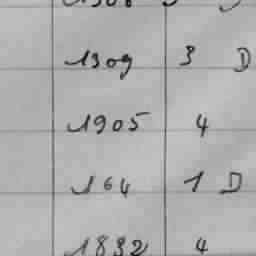 1308
1309 3 D
1905 4
164 1 D
1832 4